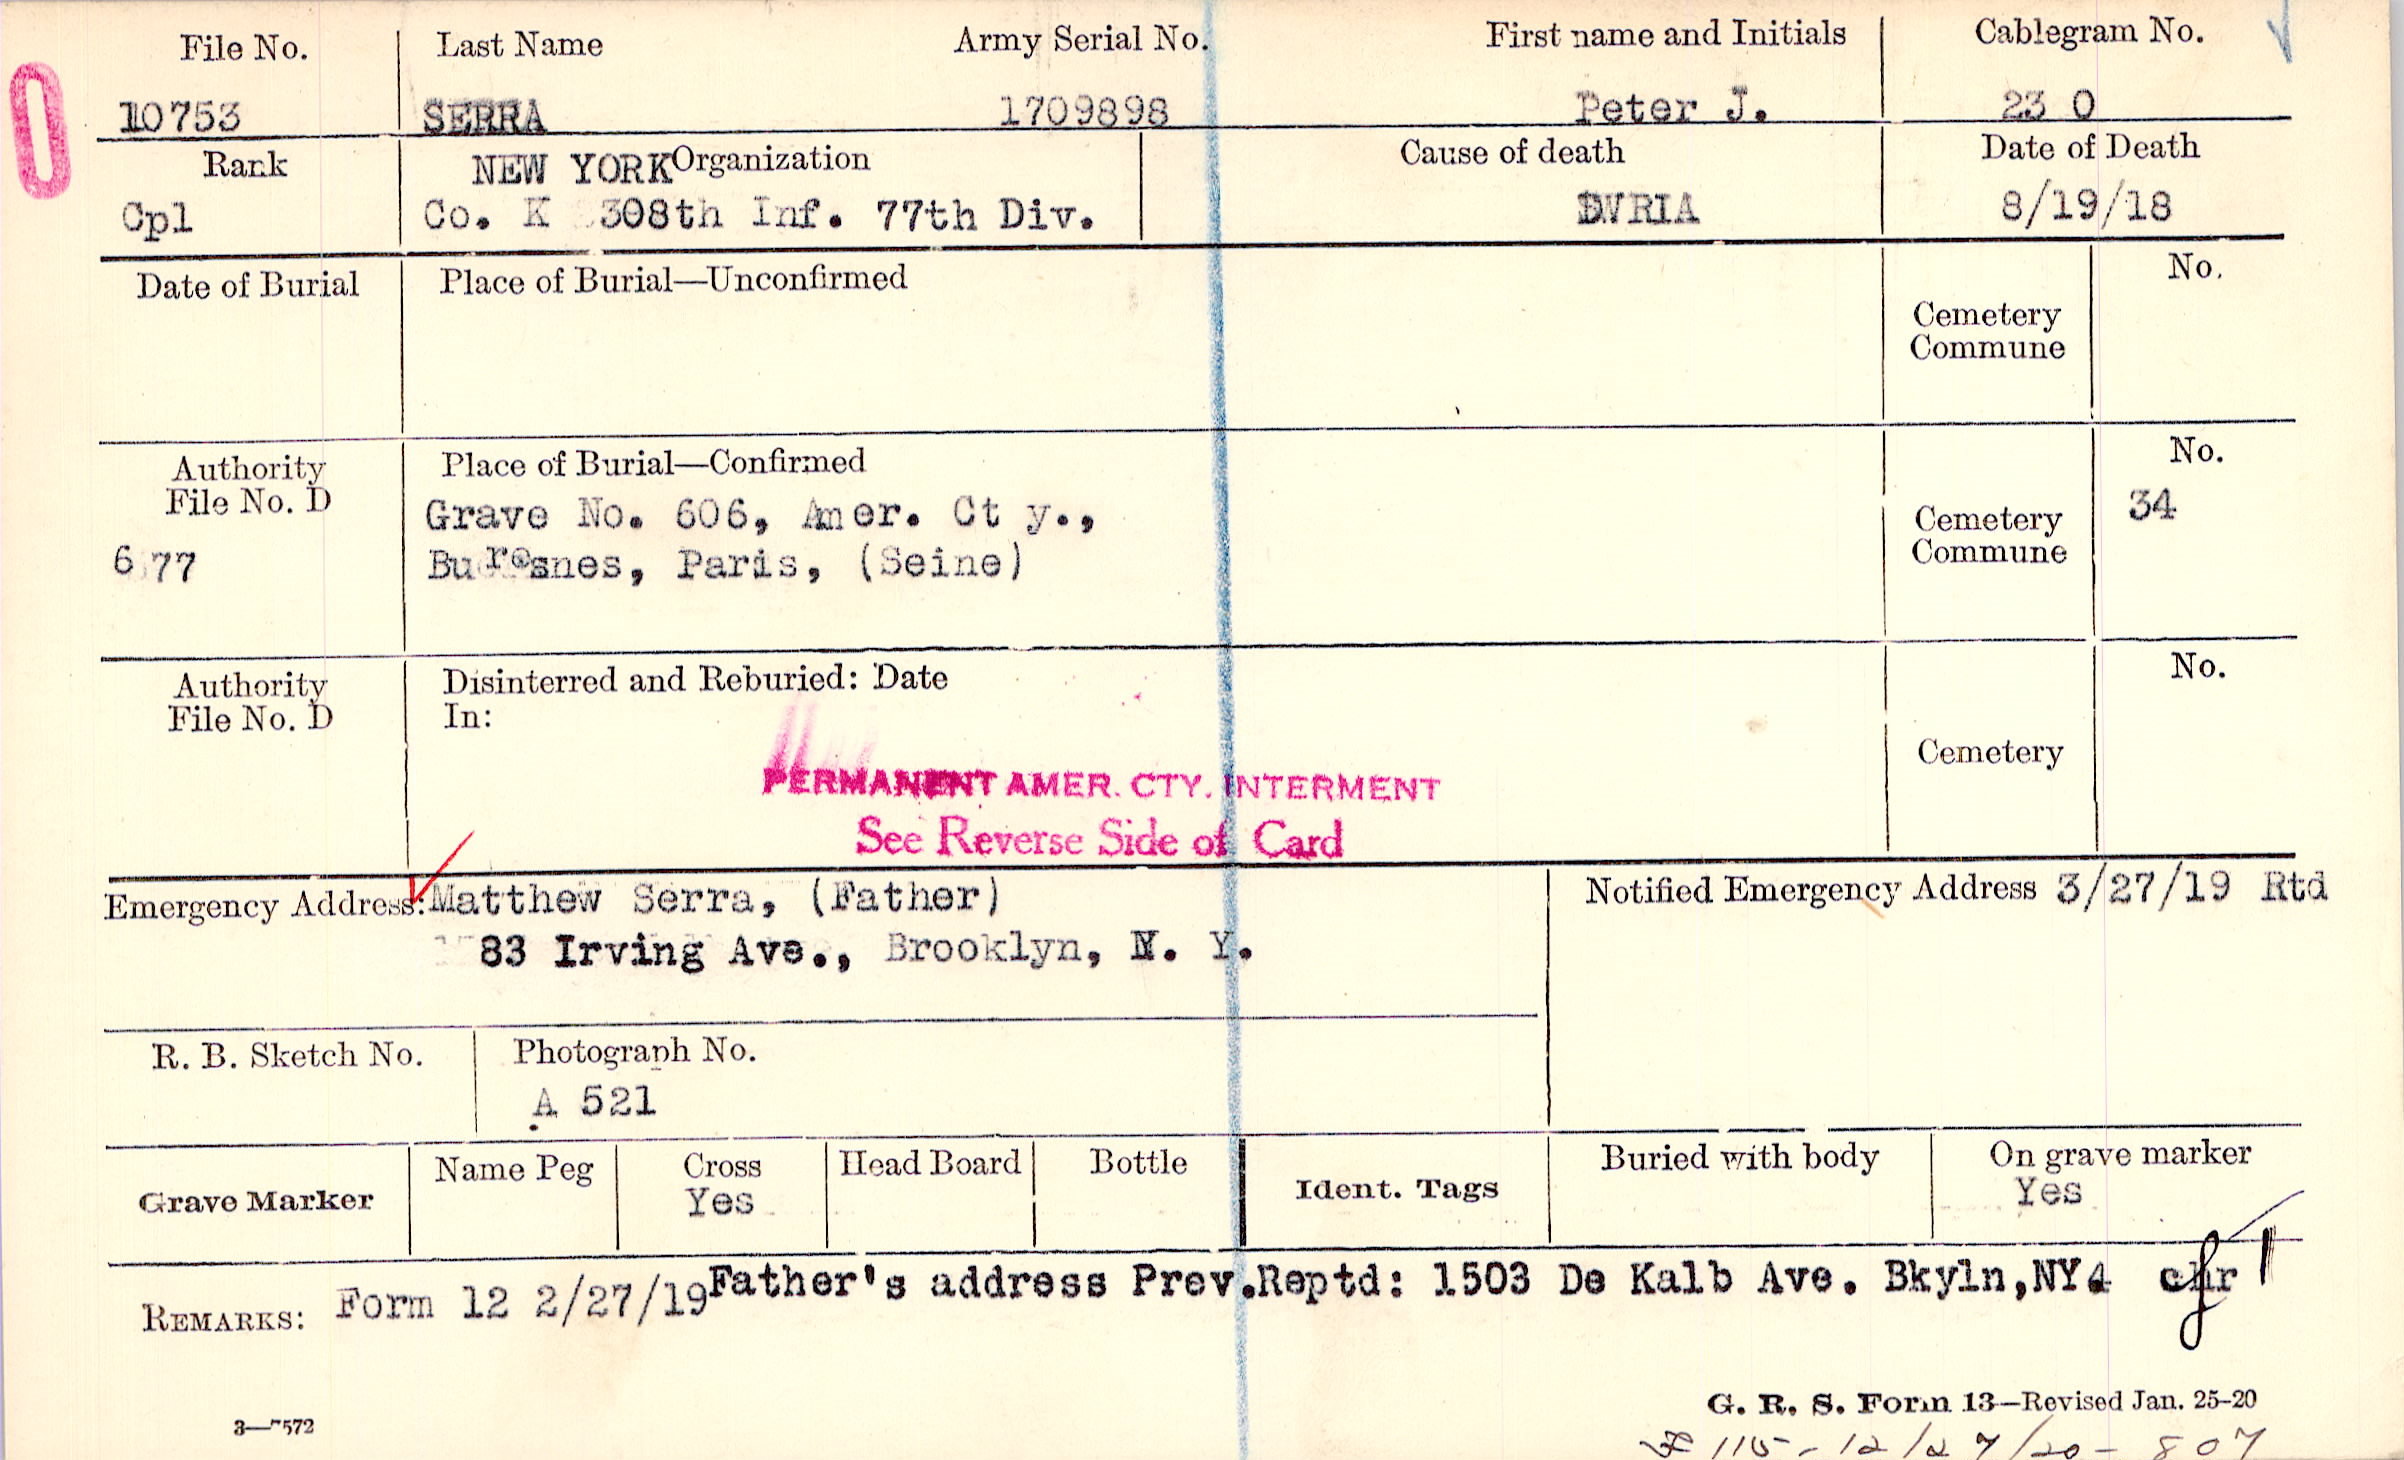 File No. Last Name Army Serial No. First name and Initials Cablegram No.
10753 SERRA 1709898 Peter J. 23 0
Rank NEW YORK Organization Cause of death Date of Death
Cpl Co. K 308th Inf. 77th Div. DWRIA 8/19/18
Date of Burial Place of Burial—Unconfirmed No.
Cemetery
Commune
Authority Place of Burial—Confirmed No.
File No. D Grave No. 606, Amer. Ct y., 34
Cemetery
Commune
6 77 Buresnes, Paris, (Seine)
Authority Disinterred and Reburied: Date No.
File No. D In:
Cemetery
PERMANENT AMER. CTY. INTERMENT
See Reverse Side of Card
Emergency Address: Matthew Serra, (Father) Notified Emergency Address 3/27/19 Rtd
83 Irving Ave., Brooklyn, N. Y.
R. B. Sketch No. Photograph No.
A 521
Grave Marker Name Peg Cross Head Board Bottle Ident. Tags Buried with body On grave marker
Yes Yes
REMARKS: Form 12 2/27/19 Father's address Prev.Reptd: 1503 De Kalb Ave. Bkyln,NY4 chr
G. R. S. Form 13—Revised Jan. 25–20
3—7572
115-12/27/20-807